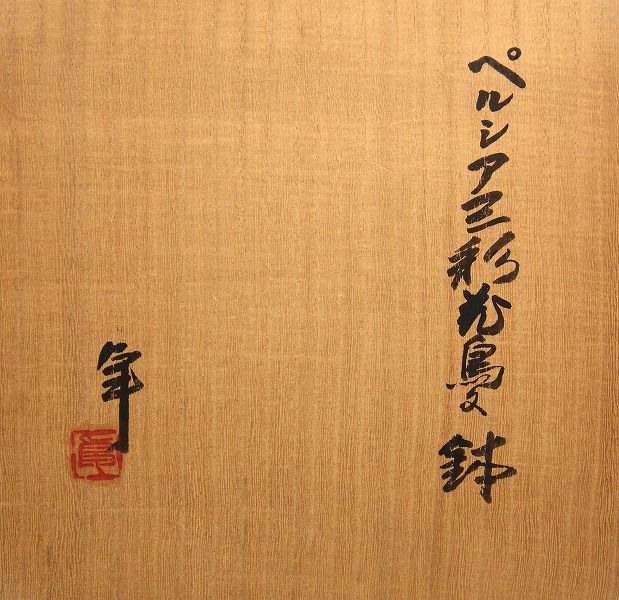 ペルシア三彩花鳥文鉢